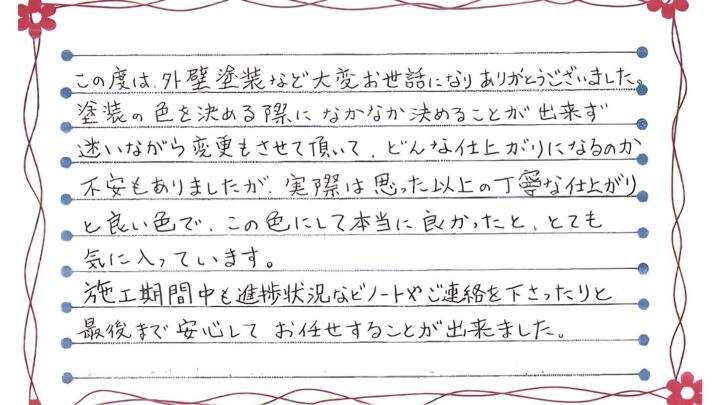 この度は、外壁塗装など大変お世話になりありがとうございました。
塗装の色を決める際になかなか決めることが出来ず
迷いながら変更もさせて頂いて、どんな仕上がりになるのか
不安もありましたが、実際は思った以上の丁寧な仕上がり
と良い色で、この色にして本当に良かったと、とても
気に入っています。
施工期間中も進捗状況などノートやご連絡を下さったりと
最後まで安心して お任せすることが出来ました。